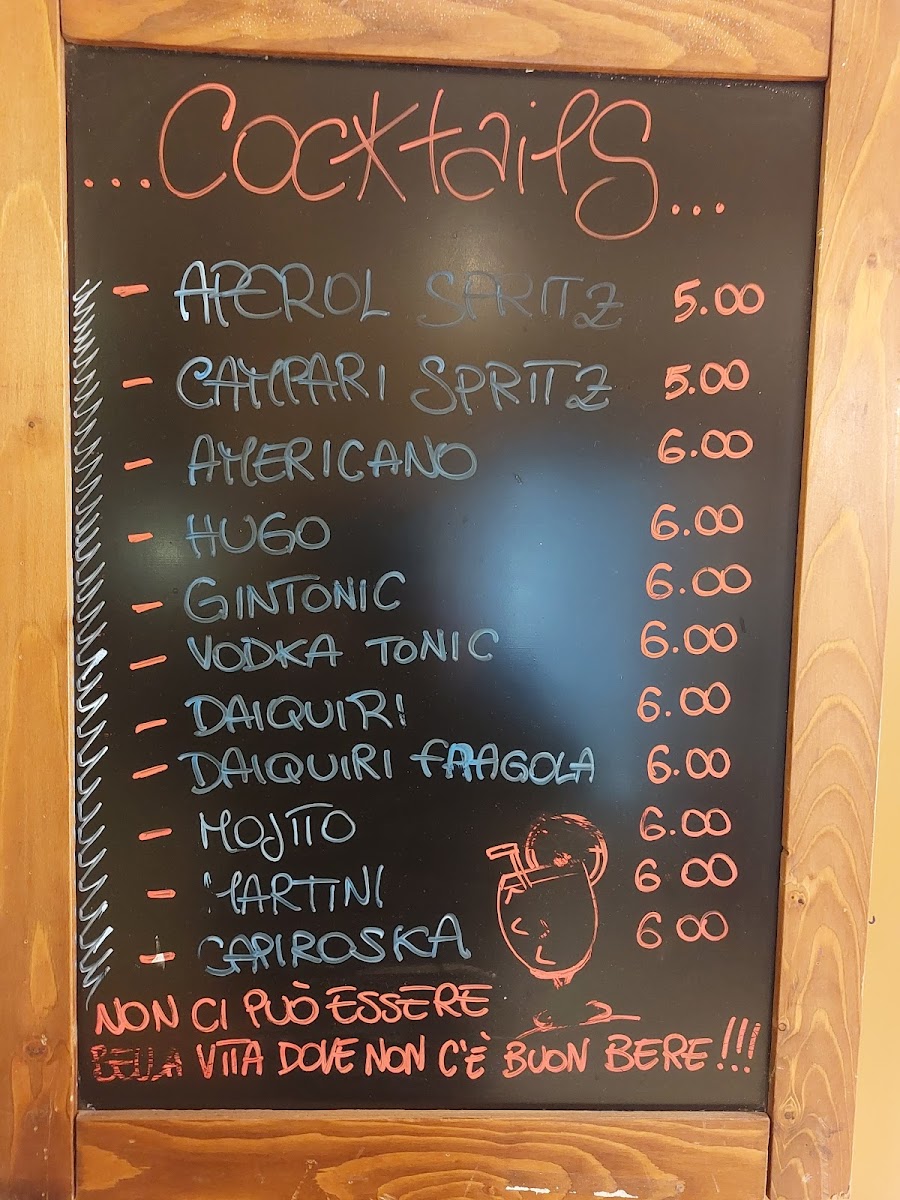 ...Cocktails...
- APEROL SPRITZ 5.00
- CAMPARI SPRITZ 5.00
- AMERICANO 6.00
- HUGO 6.00
- GINTONIC 6.00
- VODKA TONIC 6.00
- DAIQUIRI 6.00
- DAIQUIRI FRAGOLA 6.00
- MOJITO 6.00
- MARTINI 6 00
- CAPIROSKA 6 00
NON CI PUÒ ESSERE
BELLA VITA DOVE NON C'È BUON BERE!!!